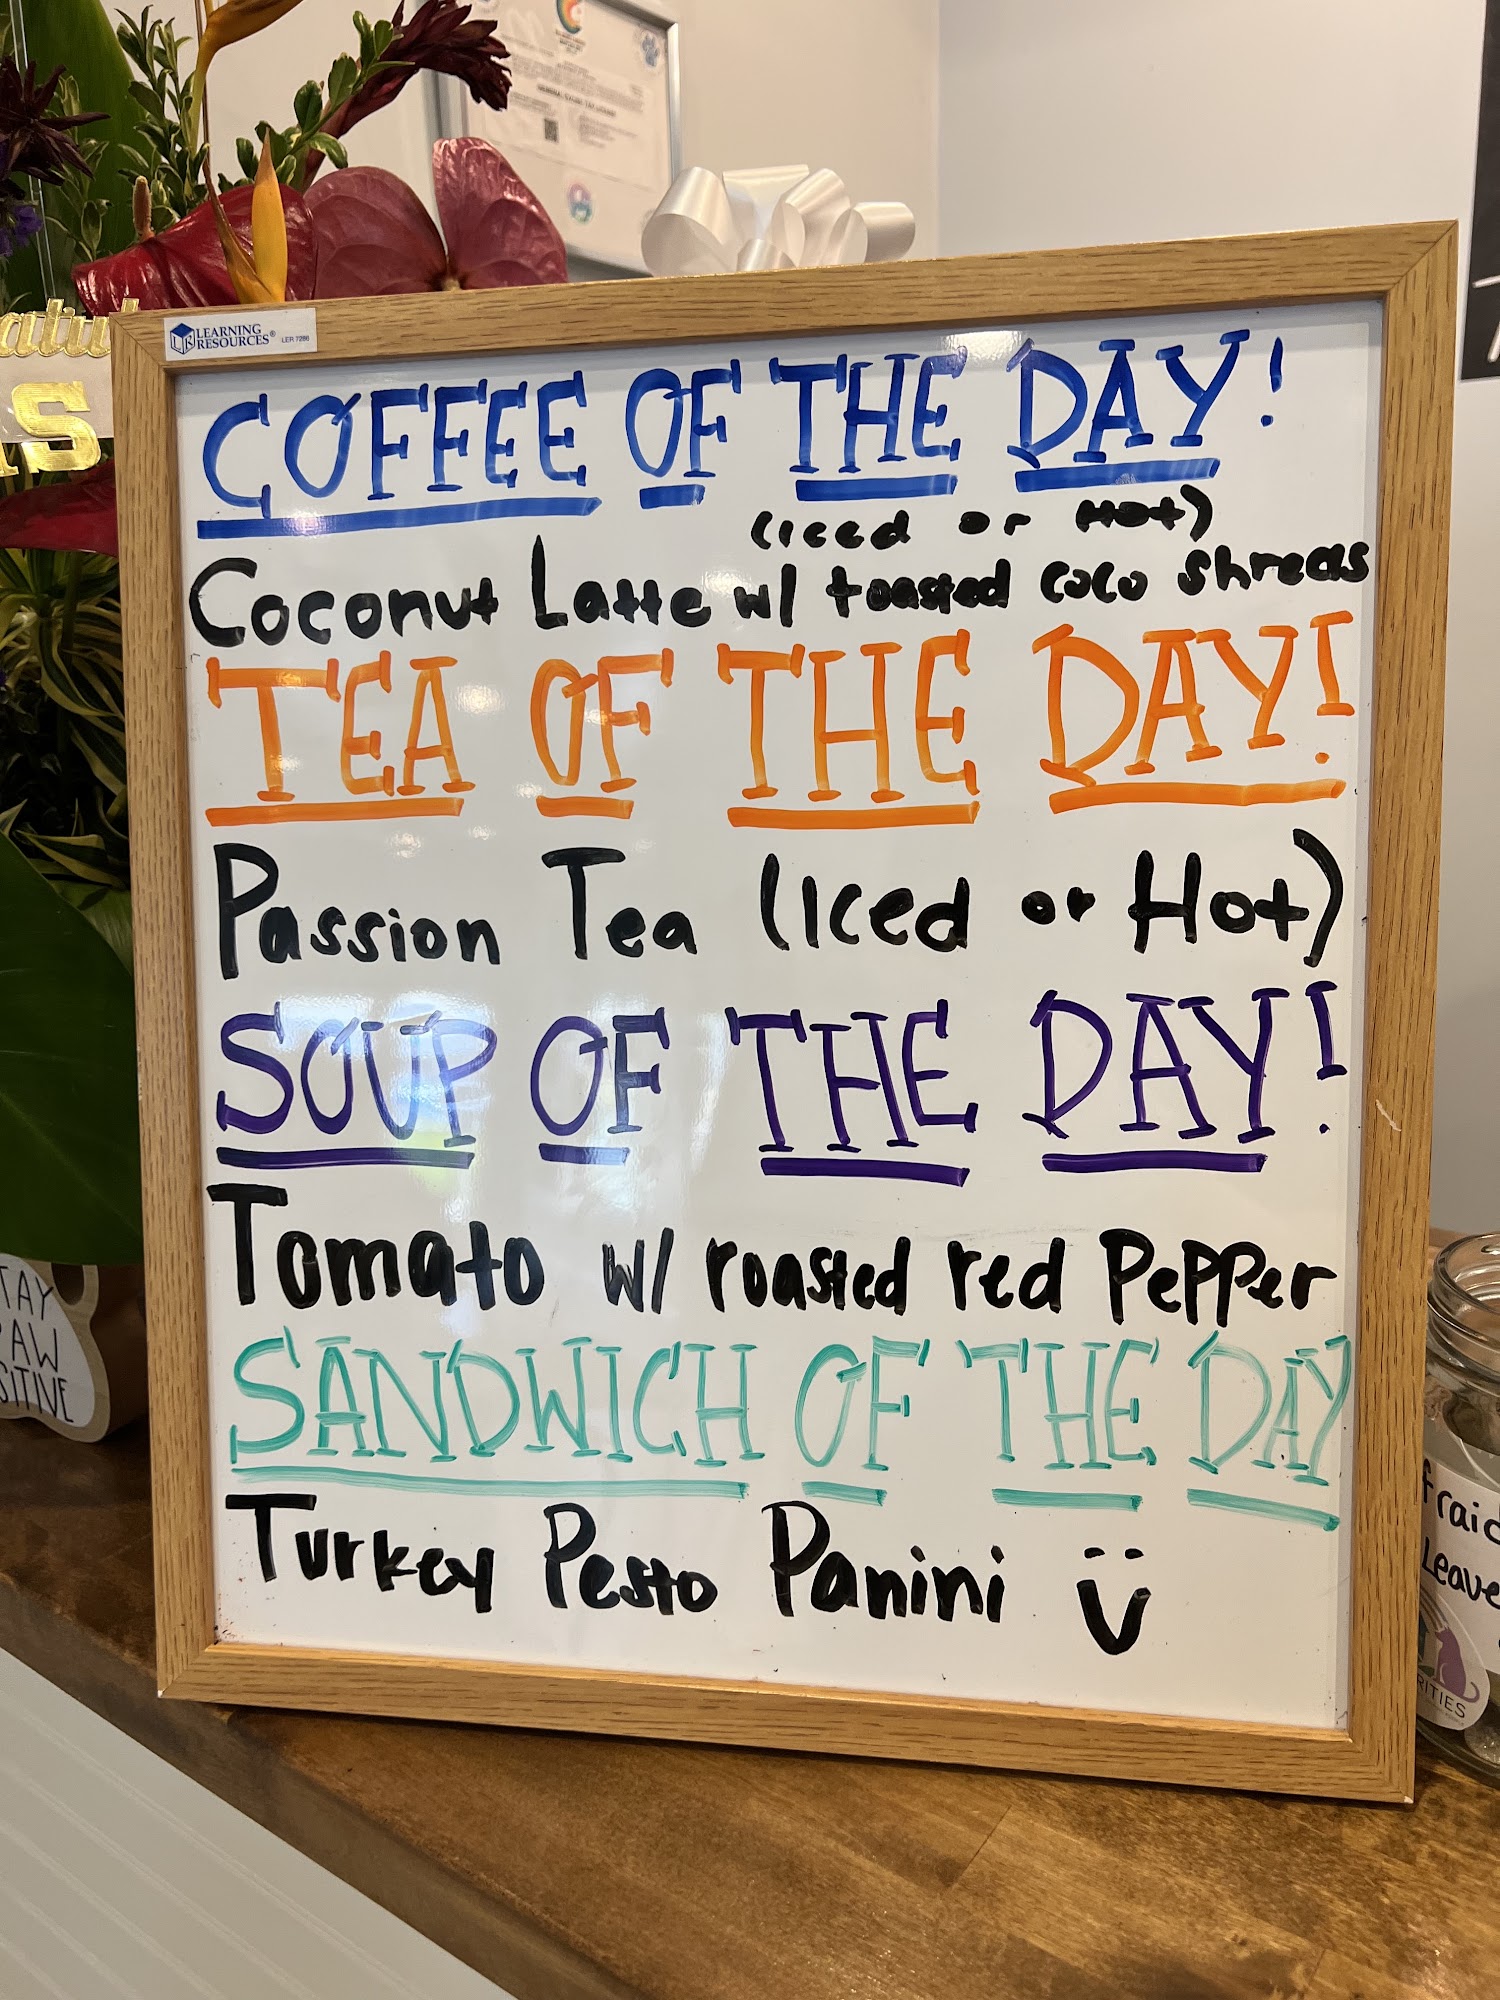 LEARNING
RESOURCES®
LER 7286
AS
COFFEE OF THE DAY!
(Iced or Hot)
Coconut Latte w/ toasted coco shreds
TEA OF THE DAY!
Passion Tea (Iced or Hot)
SOUP OF THE DAY!
Tomato w/ roasted red Pepper
SANDWICH OF THE DAY
Turkey Pesto Panini
TAY
PAW
SITIVE
fraid
Leave
RITIES